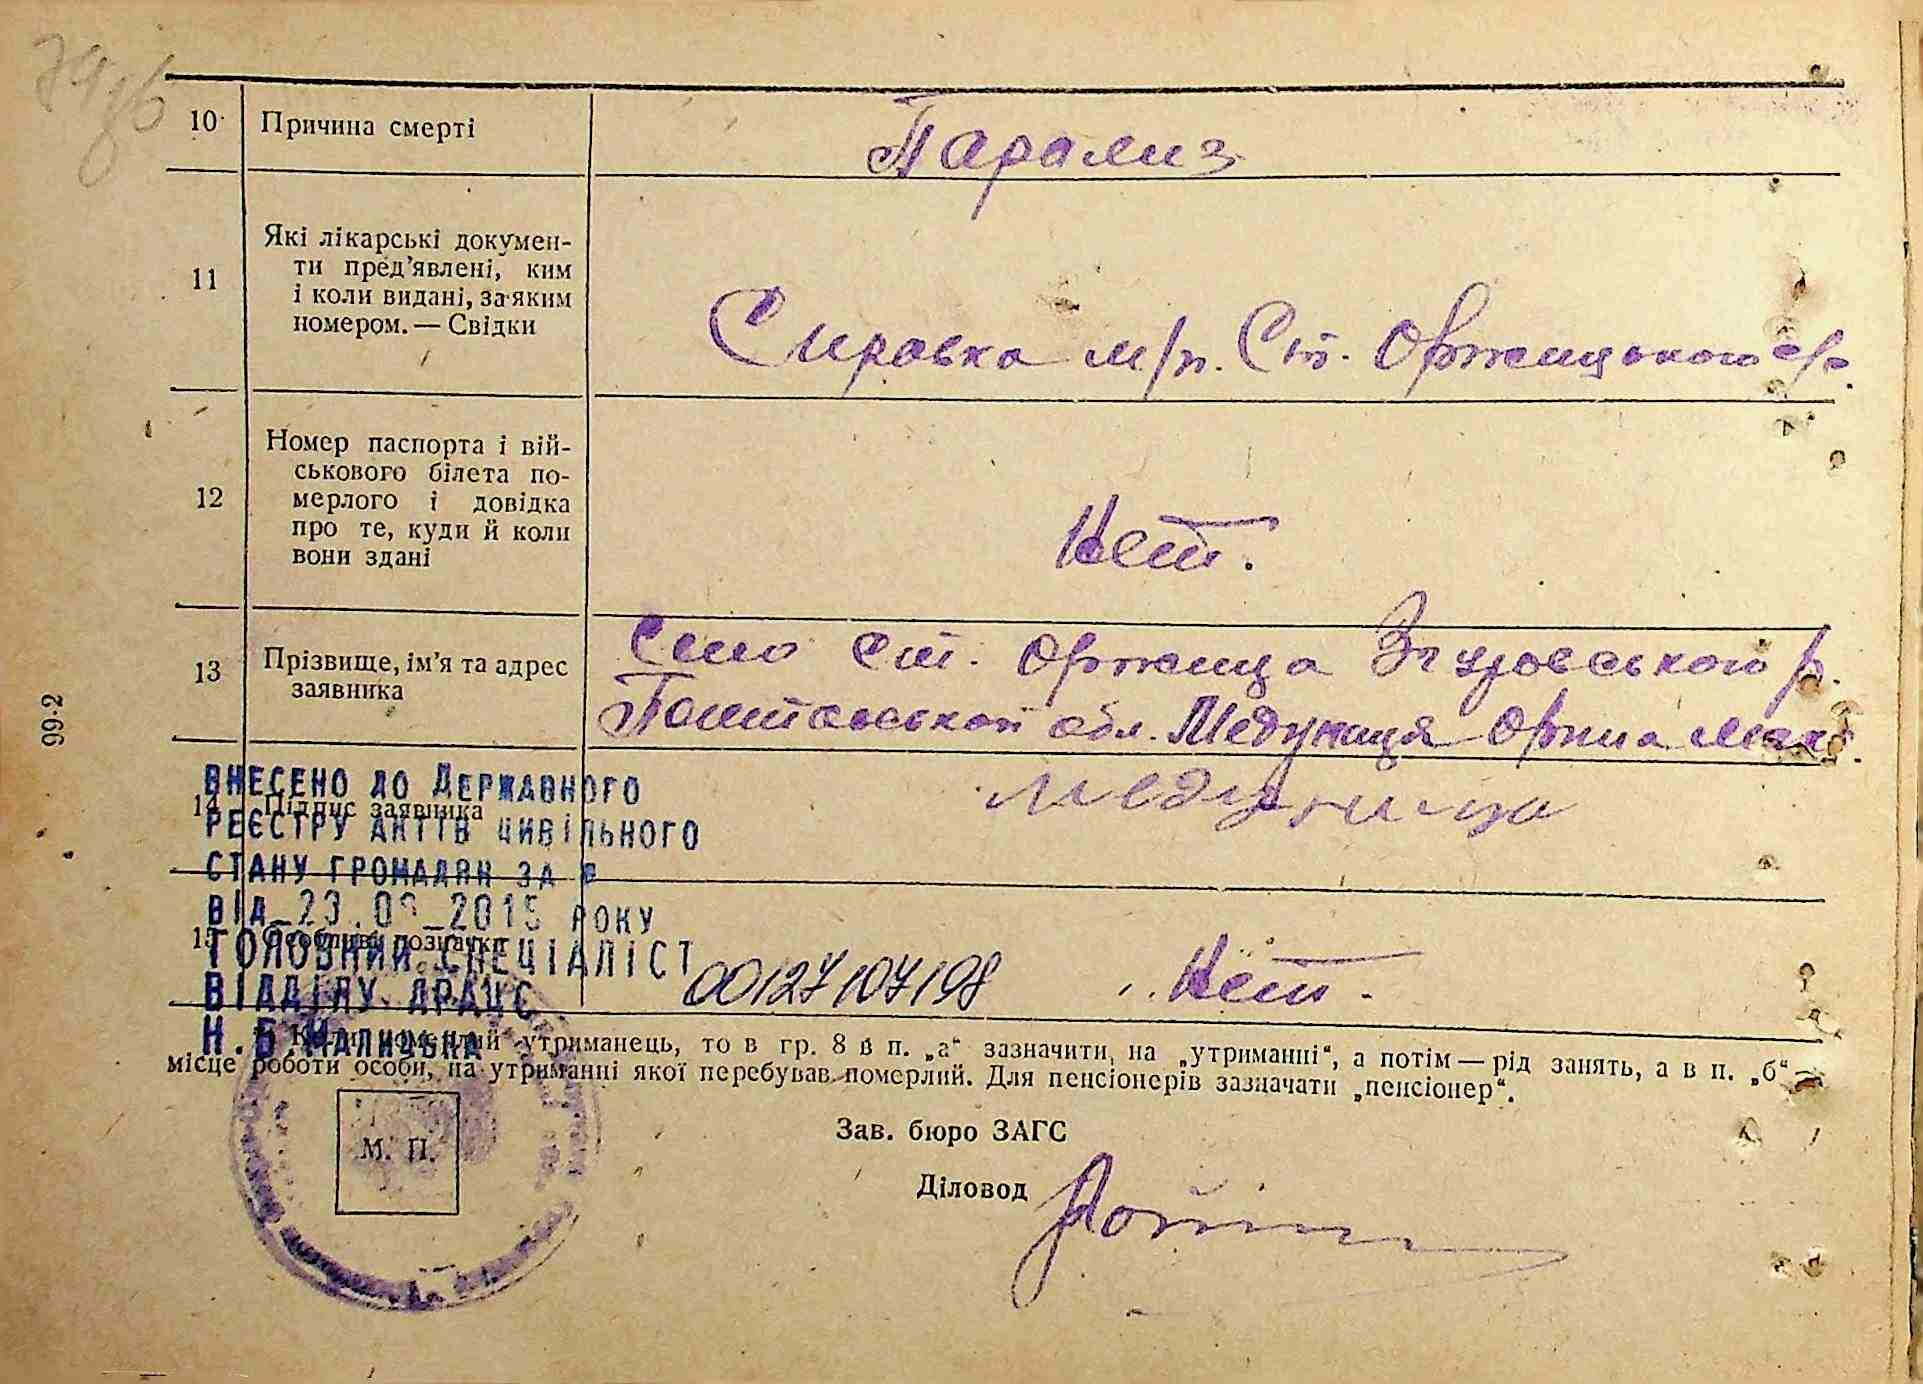 10 Причина смерті
Парализ
11 Які лікарські докумен-
ти пред'явлені, ким
і коли видані, за яким
номером. — Свідки
Справка м/п. Ст. Оржицького с/р.
12 Номер паспорта і вій-
ськового білета по-
мерлого і довідка
про те, куди й коли
вони здані
Нет.
13 Прізвище, ім'я та адрес
заявника
Село Ст. Оржица Згуровського р.
Полтавськой обл. Медуниця
14 Підпис заявника
Медуница
15 Особливі позначки
00127107198 Нет.
ВНЕСЕНО ДО ДЕРЖАВНОГО
РЕЄСТРУ АКТІВ ЦИВІЛЬНОГО
СТАНУ ГРОМАДЯН ЗА
ВІД 23. 2015 РОКУ
ГОЛОВНИЙ СПЕЦІАЛІСТ
ВІДДІЛУ ДРАЦС
утриманець, то в гр. 8 в п. „а“ зазначити, на „утриманні“, а потім — рід занять, а в п. „б“ —
місце роботи особи, на утриманні якої перебував померлий. Для пенсіонерів зазначати „пенсіонер“.
М. П.
Зав. бюро ЗАГС
Діловод
99-2